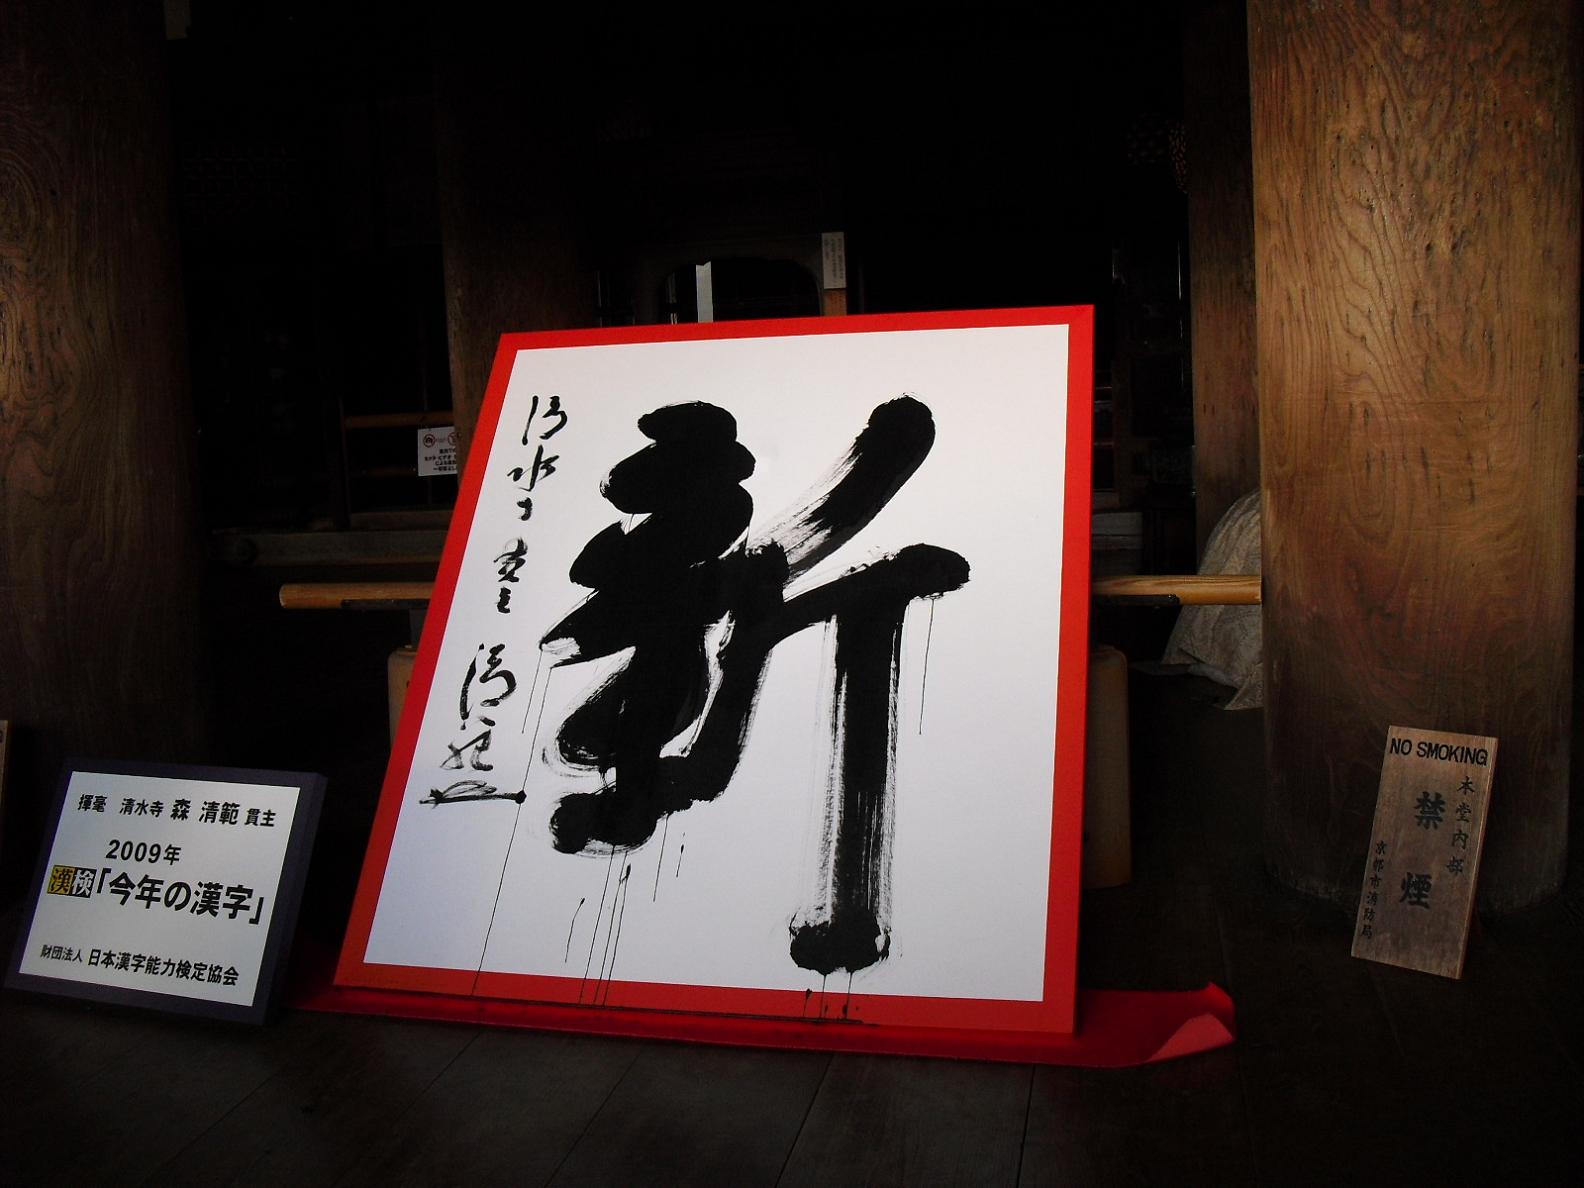 新
清水寺貫主 清範
揮毫 清水寺 森 清範 貫主
2009年
漢検「今年の漢字」
財団法人 日本漢字能力検定協会
NO SMOKING
本堂内部
禁煙
京都市消防局